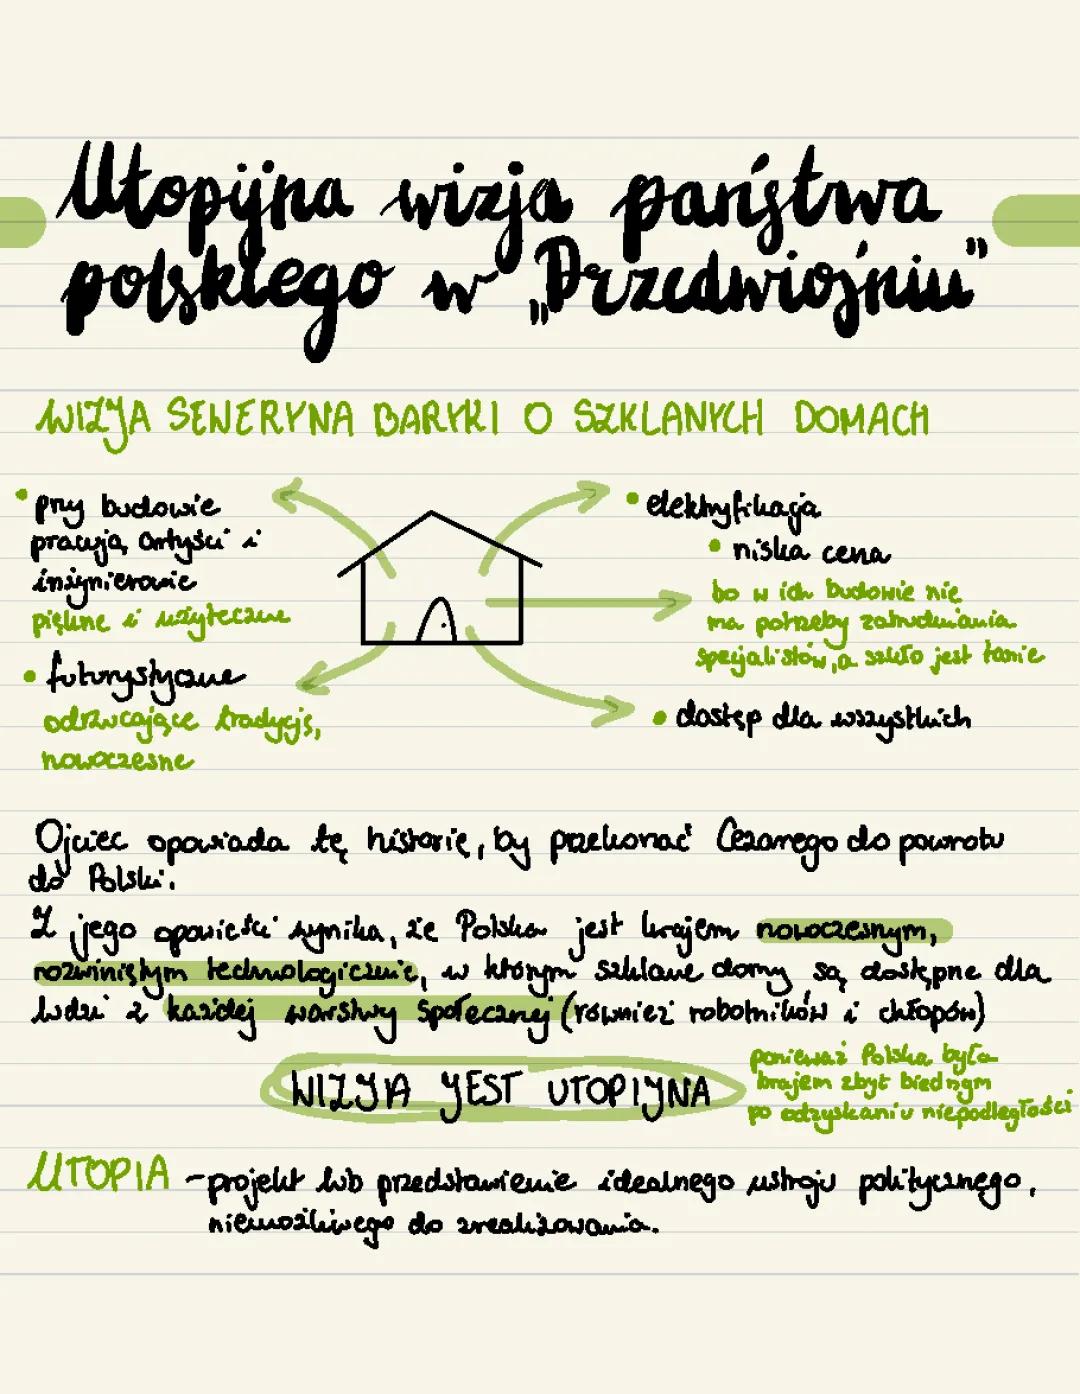 Utopijna wizja państwa
polskiego w „Przedwiośniu"
WIZJA SEWERYNA BARYKI O SZKLANYCH DOMACH
• przy budowie
pracują artyści i
inżynierowie
piękne i użyteczne
• futurystyczne
odrzucające tradycję,
nowoczesne
• elektryfikacja
• niska cena
bo w ich budowie nie
ma potrzeby zatrudniania
specjalistów, a szkło jest tanie
• dostęp dla wszystkich
Ojciec opowiada tę historię, by przekonać Cezarego do powrotu
do Polski.
Z jego opowieści wynika, że Polska jest krajem nowoczesnym,
rozwiniętym technologicznie, w którym szklane domy są dostępne dla
ludzi z każdej warstwy społecznej (również robotników i chłopów)
WIZJA JEST UTOPIJNA
ponieważ Polska była
krajem zbyt biednym
po odzyskaniu niepodległości
UTOPIA - projekt lub przedstawienie idealnego ustroju politycznego,
niemożliwego do zrealizowania.